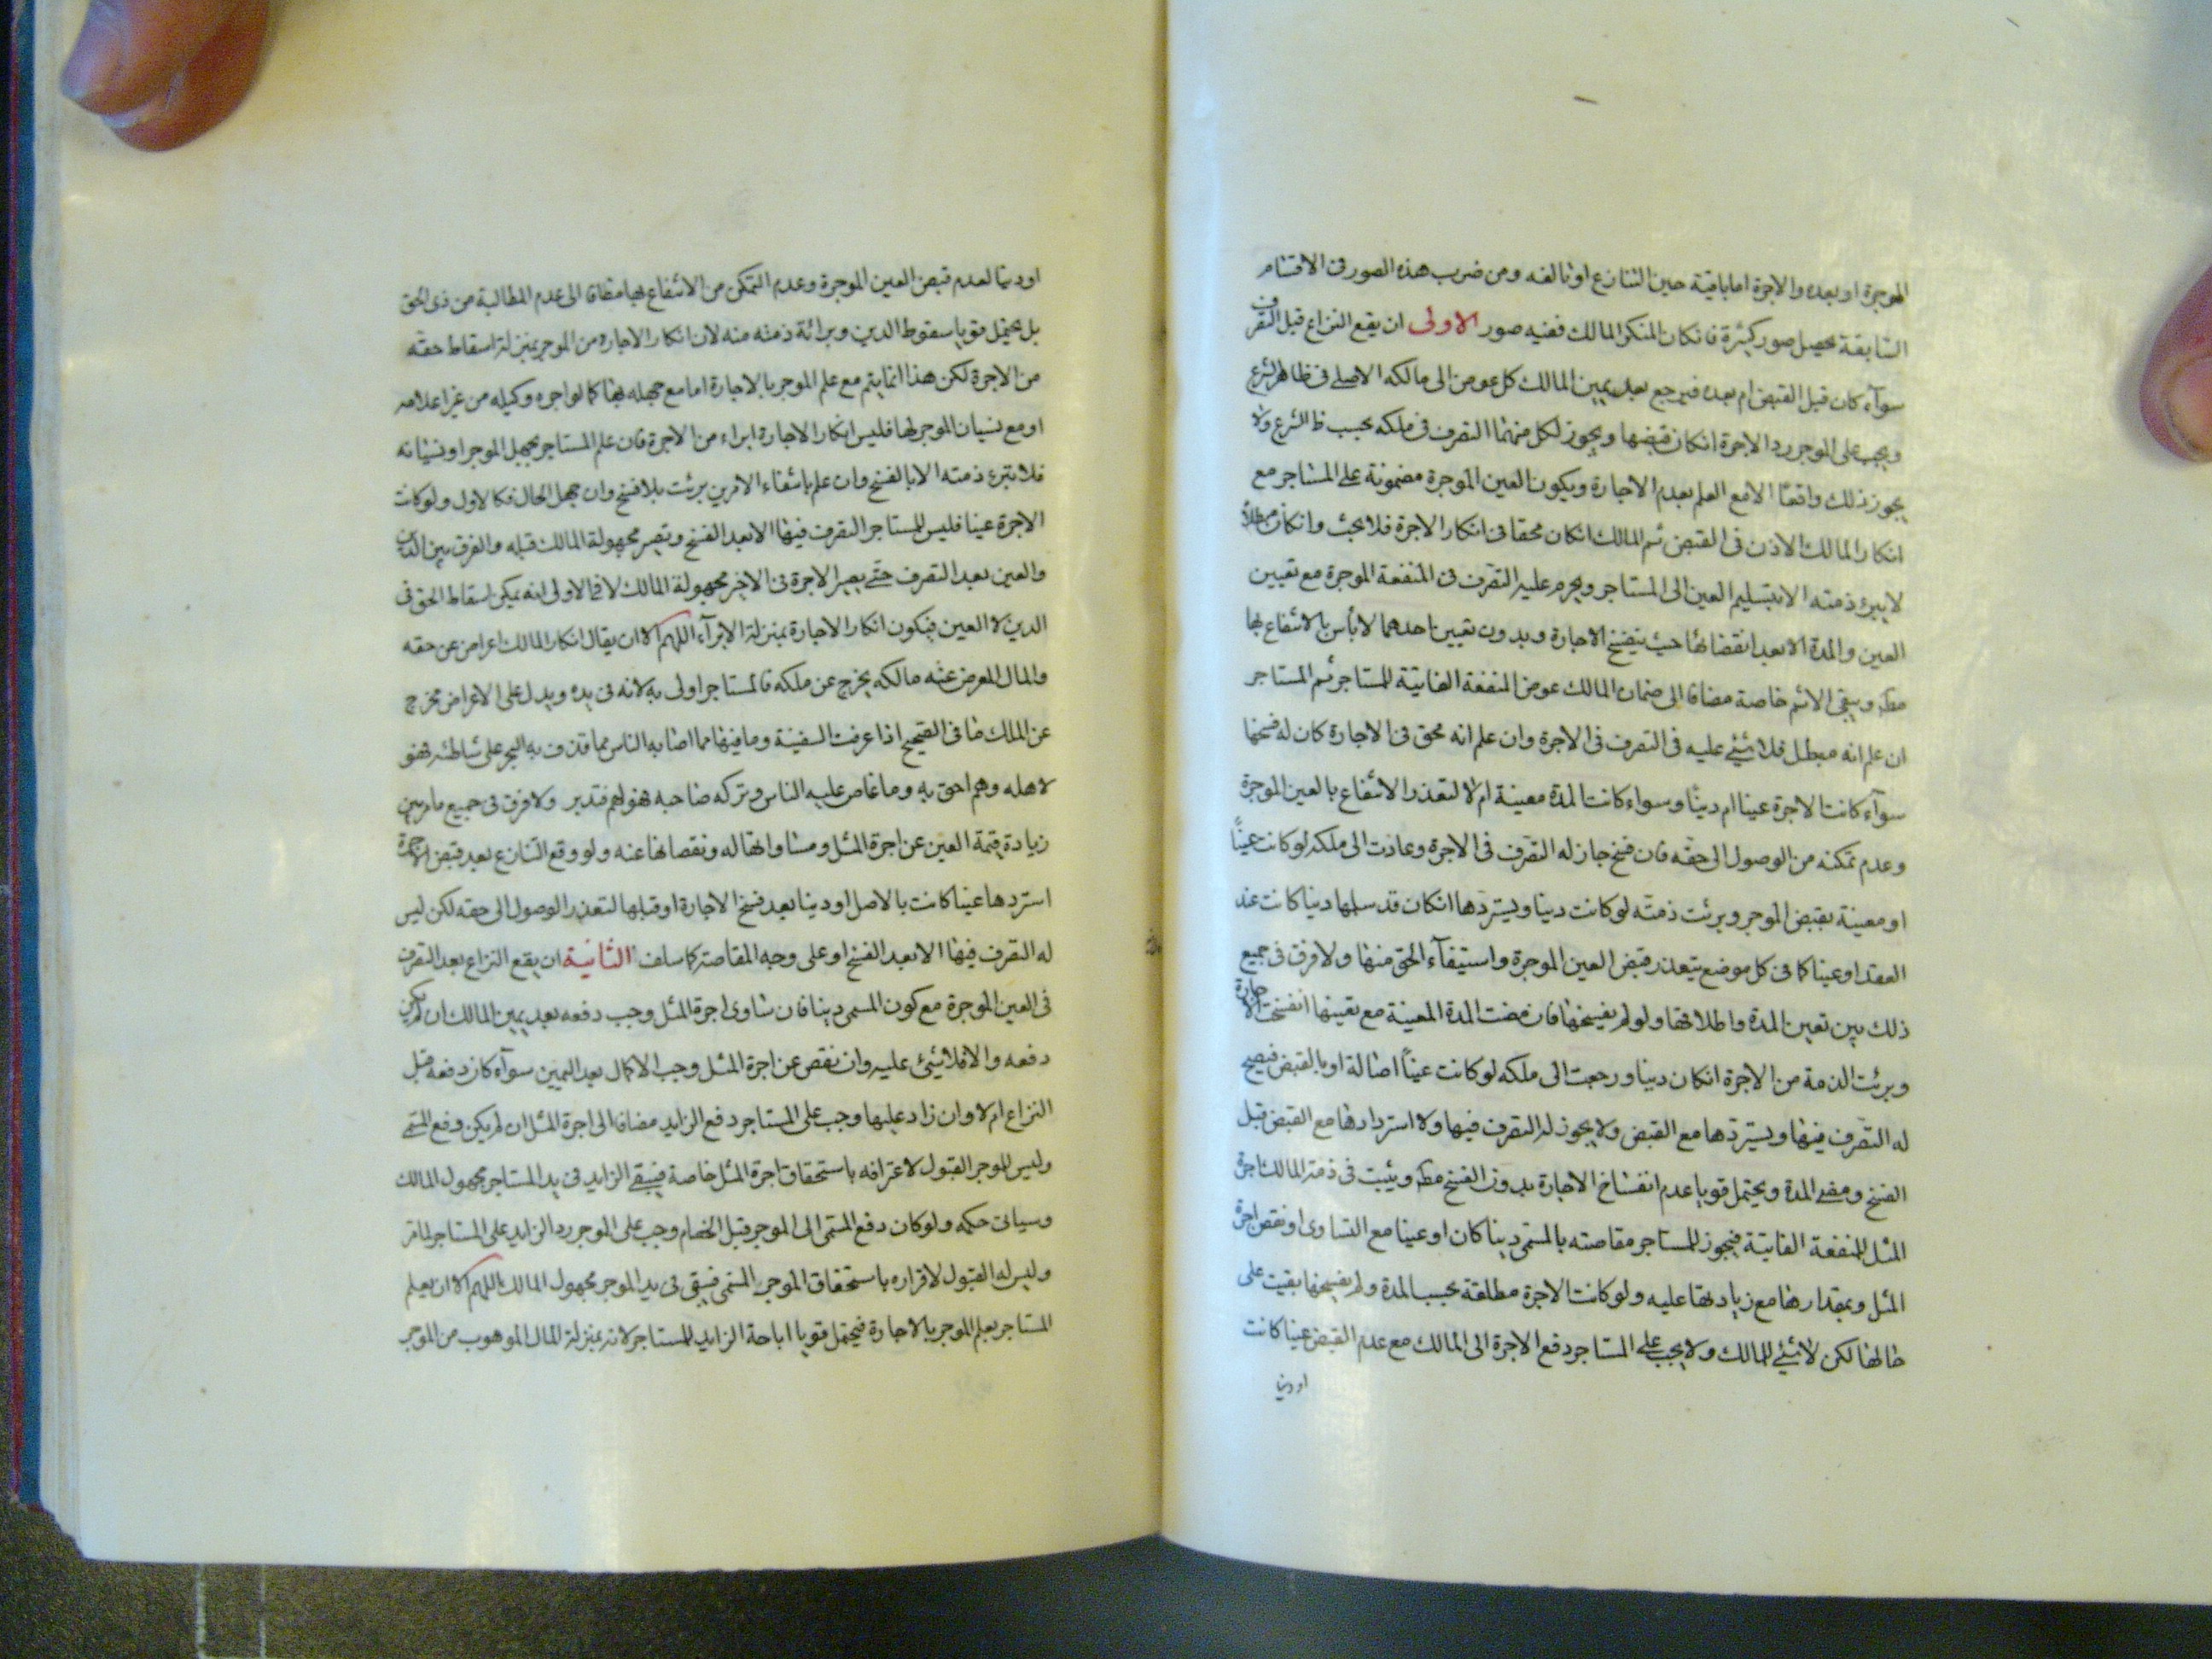 الموجرة او بعده والاجرة اما باقية حين التنازع او تالفه ومن ضرب هذه الصور فى الاقسام
السابقة يحصل صور كثيرة فانكان المنكر المالك ففيه صور الاولى ان يقع النزاع قبل التصرف
سوآء كان قبل القبض ام بعده فيرجع بعد يمين المالك كل عوض الى مالكه الاصلى فى ظاهر الشرع
ويجب على الموجر رد الاجرة انكان قبضها ويجوز لكل منهما التصرف فى ملكه بحسب ظ الشرع ولا
يجوز ذلك واقعًا الا مع العلم بعدم الاجارة ويكون العين الموجرة مضمونة على المستاجر مع
انكار المالك الاذن فى القبض ثم المالك انكان محقا فى انكار الاجرة فلا بحث وانكان مبطلاً
لا يبرء ذمته الا بتسليم العين الى المستاجر ويحرم عليه التصرف فى المنفعة الموجرة مع تعيين
العين والمدة الا بعد انقضائها حيث ينفسخ الاجارة وبدون تعيين احدهما لا بأس بالانتفاع بها
مط ويبقى الاثم خاصة مضافا الى ضمان المالك عوض المنفعة الفايتة للمستاجر ثم المستاجر
ان علم انه مبطل فلا شيئ عليه فى التصرف فى الاجرة وان علم انه محق فى الاجارة كان له فسخها
سوآء كانت الاجرة عينا ام دينًا وسواء كانت المدة معينة ام لا لتعذر الانتفاع بالعين الموجرة
وعدم تمكنه من الوصول الى حقه فان فسخ جاز له التصرف فى الاجرة وعادت الى ملكه لو كانت عينًا
او معينة بقبض الموجر وبرئت ذمته لو كانت دينا ويستردها انكان قد سلمها دينا كانت عند
العقد او عينا كما فى كل موضع يتعذر قبض العين الموجرة واستيفآء الحق منها ولا فرق فى جميع
ذلك بين تعيين المدة واطلاقها ولو لم يفسخها فان مضت المدة المعينة مع تعيينها انفسخت الاجارة
وبرئت الذمة من الاجرة انكان دينا ورجعت الى ملكه لو كانت عينًا اصالة او بالقبض فيصح
له التصرف فيها ويستردها مع القبض ولا يجوز له التصرف فيها ولا استردادها مع القبض قبل
الفسخ ومضى المدة ويحتمل قويا عدم انفساخ الاجارة بدون الفسخ مط ويثبت فى ذمة المالك اجرة
المثل للمنفعة الفايتة فيجوز للمستاجر مقاصته بالمسمى دينا كان او عينا مع التساوى او نقص اجرة
المثل وبمقدارها مع زيادتها عليه ولو كانت الاجرة مطلقة بحسب المدة ولم يفسخها بقيت على
حالها لكن لا شيئ للمالك ولا يجب على المستاجر دفع الاجرة الى المالك مع عدم القبض عينا كانت
او دينا
او دينا لعدم قبض العين الموجرة وعدم التمكن من الانتفاع بها مضافا الى عدم المطالبة من ذى الحق
بل يحتمل قويا سقوط الدين وبرائة ذمته منه لان انكار الاجاره من الموجر بمنزلة اسقاط حقه
من الاجرة لكن هذا انما يتم مع علم الموجر بالاجارة اما مع جهله بها كما لو اجره وكيله من غير اعلامه
او مع نسيان الموجر لها فليس انكار الاجارة ابراء من الاجرة فان علم المستاجر بجهل الموجر او نسيانه
فلا تبرء ذمته الا بالفسخ وان علم بانتفاء الامرين برئت بلا فسخ وان جهل الحال فكالاول ولو كانت
الاجرة عينا فليس للمستاجر التصرف فيها الا بعد الفسخ وتصير مجهولة المالك قبله والفرق بين الدين
والعين بعد التصرف حتى يصير الاجرة فى الاخير مجهولة المالك لا فى الاولى انه يمكن اسقاط الحق فى
الدين لا العين فيكون انكار الاجارة بمنزلة الابرآء اللهم الا ان يقال انكار المالك اعراض عن حقه
والمال المعرض عنه مالكه يخرج عن ملكه فالمستاجر اولى به لانه فى يده ويدل على الاعراض مخرج
عن الملك ما فى الصحيح اذا غرقت السفينة وما فيها مما اصابه الناس مما قذف به البحر على شاطئه فهو
لاهله وهم احق به وما غاص عليه الناس وتركه صاحبه فهو لهم فتدبر ولا فرق فى جميع ما مر بين
زيادة قيمة العين عن اجرة المثل ومساواتها له ونقصانها عنه ولو وقع التنازع بعد قبض الاجرة
استردها عينا كانت بالاصل او دينا بعد فسخ الاجارة او قبلها لتعذر الوصول الى حقه لكن ليس
له التصرف فيها الا بعد الفسخ او على وجه المقاصة كما سلف الثانية ان يقع النزاع بعد التصرف
فى العين الموجرة مع كون المسمى دينا فان ساوى اجرة المثل وجب دفعه بعد يمين المالك ان لم يكن
دفعه والا فلا شيئ عليه وان نقص عن اجرة المثل وجب الاكمال بعد اليمين سوآء كان دفعه قبل
النزاع ام لا وان زاد عليها وجب على المستاجر دفع الزايد مضافا الى اجرة المثل ان لم يكن دفع المسمى
وليس للموجر القبول لاعترافه باستحقاق اجرة المثل خاصة فيبقى الزايد فى يد المستاجر مجهول المالك
وسياتى حكمه ولو كان دفع المسمى الى الموجر قبل الخصام وجب على الموجر رد الزايد على المستاجر لما مر
وليس له القبول لاقراره باستحقاق الموجر المسمى فيبقى فى يد الموجر مجهول المالك اللهم الا ان يعلم
المستاجر بعلم الموجر بالاجارة فيحتمل قويا اباحة الزايد للمستاجر لانه بمنزلة المال الموهوب من الموجر